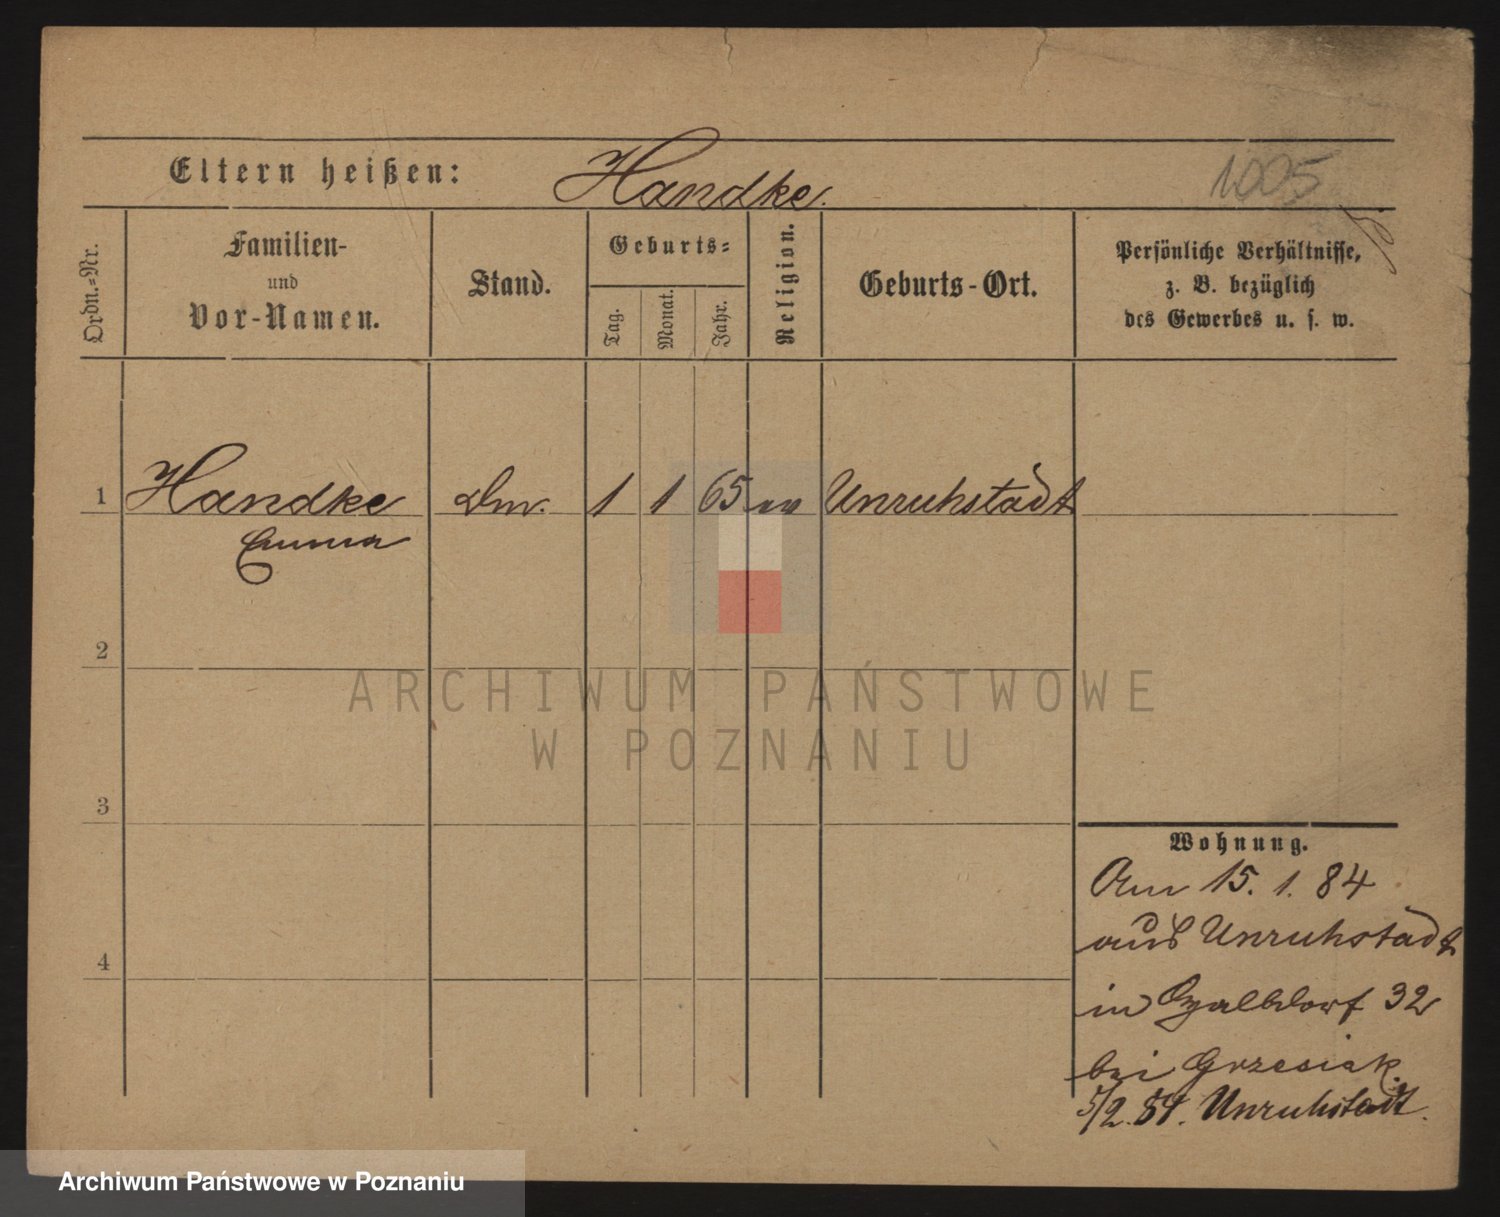 Eltern heißen: Handke. 1005
Ordn.-Nr.
Familien-
und
Vor-Namen.
Stand.
Geburts-
Tag.
Monat.
Jahr.
Religion.
Geburts-Ort.
Persönliche Verhältnisse,
z. B. bezüglich
des Gewerbes u. s. w.
1 Handke 1 1 65 ev Unruhstadt
Emma
2
ARCHIWUM PAŃSTWOWE
W POZNANIU
3
4
Wohnung.
Am 15. 1. 84
aus Unruhstadt
in 32
bei Grzesiak
5/2. 84. Unruhstadt.
Archiwum Państwowe w Poznaniu